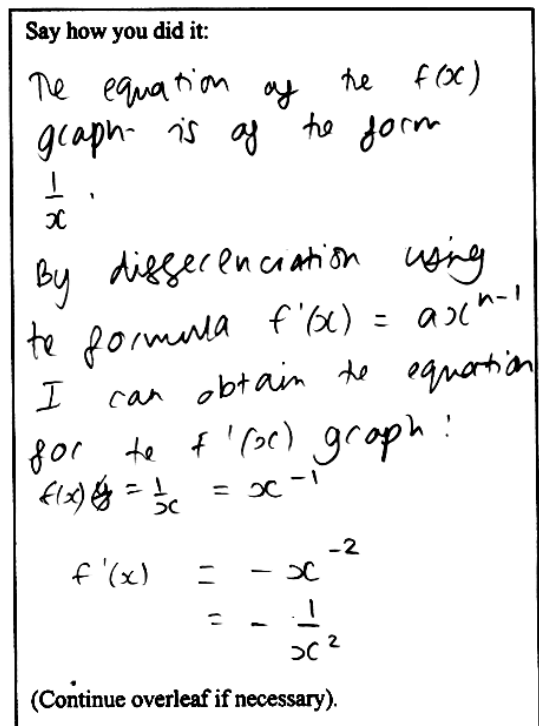 Say how you did it:
The equation of the f(x)
graph is of the form
1/x.
By differenciation using
te formula f'(x) = ax^{n-1}
I can obtain te equation
for te f'(x) graph:
f(x) = 1/x = x^{-1}
f'(x) = -x^{-2}
= - 1/x^2
(Continue overleaf if necessary).